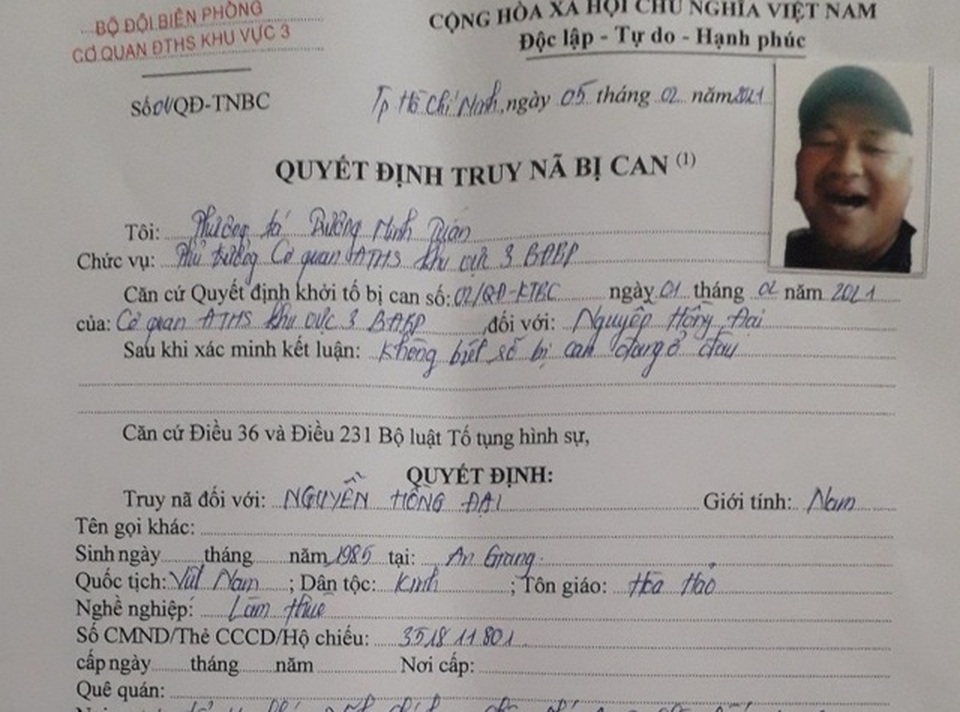 BỘ ĐỘI BIÊN PHÒNG
CƠ QUAN ĐTHS KHU VỰC 3
CỘNG HÒA XÃ HỘI CHỦ NGHĨA VIỆT NAM
Độc lập - Tự do - Hạnh phúc
Số:01/QĐ-TNBC
Tp Hồ Chí Minh, ngày 05 tháng 02 năm 2021
QUYẾT ĐỊNH TRUY NÃ BỊ CAN (1)
Tôi: Thượng tá Dương Minh
Chức vụ: Phó trưởng Cơ quan ĐTHS khu vực 3 BĐBP
Căn cứ Quyết định khởi tố bị can số: 02/QĐ-KTBC ngày 01 tháng 02 năm 2021
của: Cơ quan ĐTHS khu vực 3 BĐBP, đối với: Nguyễn Hồng Đại
Sau khi xác minh kết luận: không biết số bị can đang ở đâu
Căn cứ Điều 36 và Điều 231 Bộ luật Tố tụng hình sự,
QUYẾT ĐỊNH:
Truy nã đối với: NGUYỄN HỒNG ĐẠI Giới tính: Nam
Tên gọi khác:
Sinh ngày tháng năm 1985 tại: An Giang
Quốc tịch: Việt Nam ; Dân tộc: Kinh ; Tôn giáo: Hòa Hảo
Nghề nghiệp: Làm thuê
Số CMND/Thẻ CCCD/Hộ chiếu: 351811801
cấp ngày tháng năm Nơi cấp:
Quê quán: